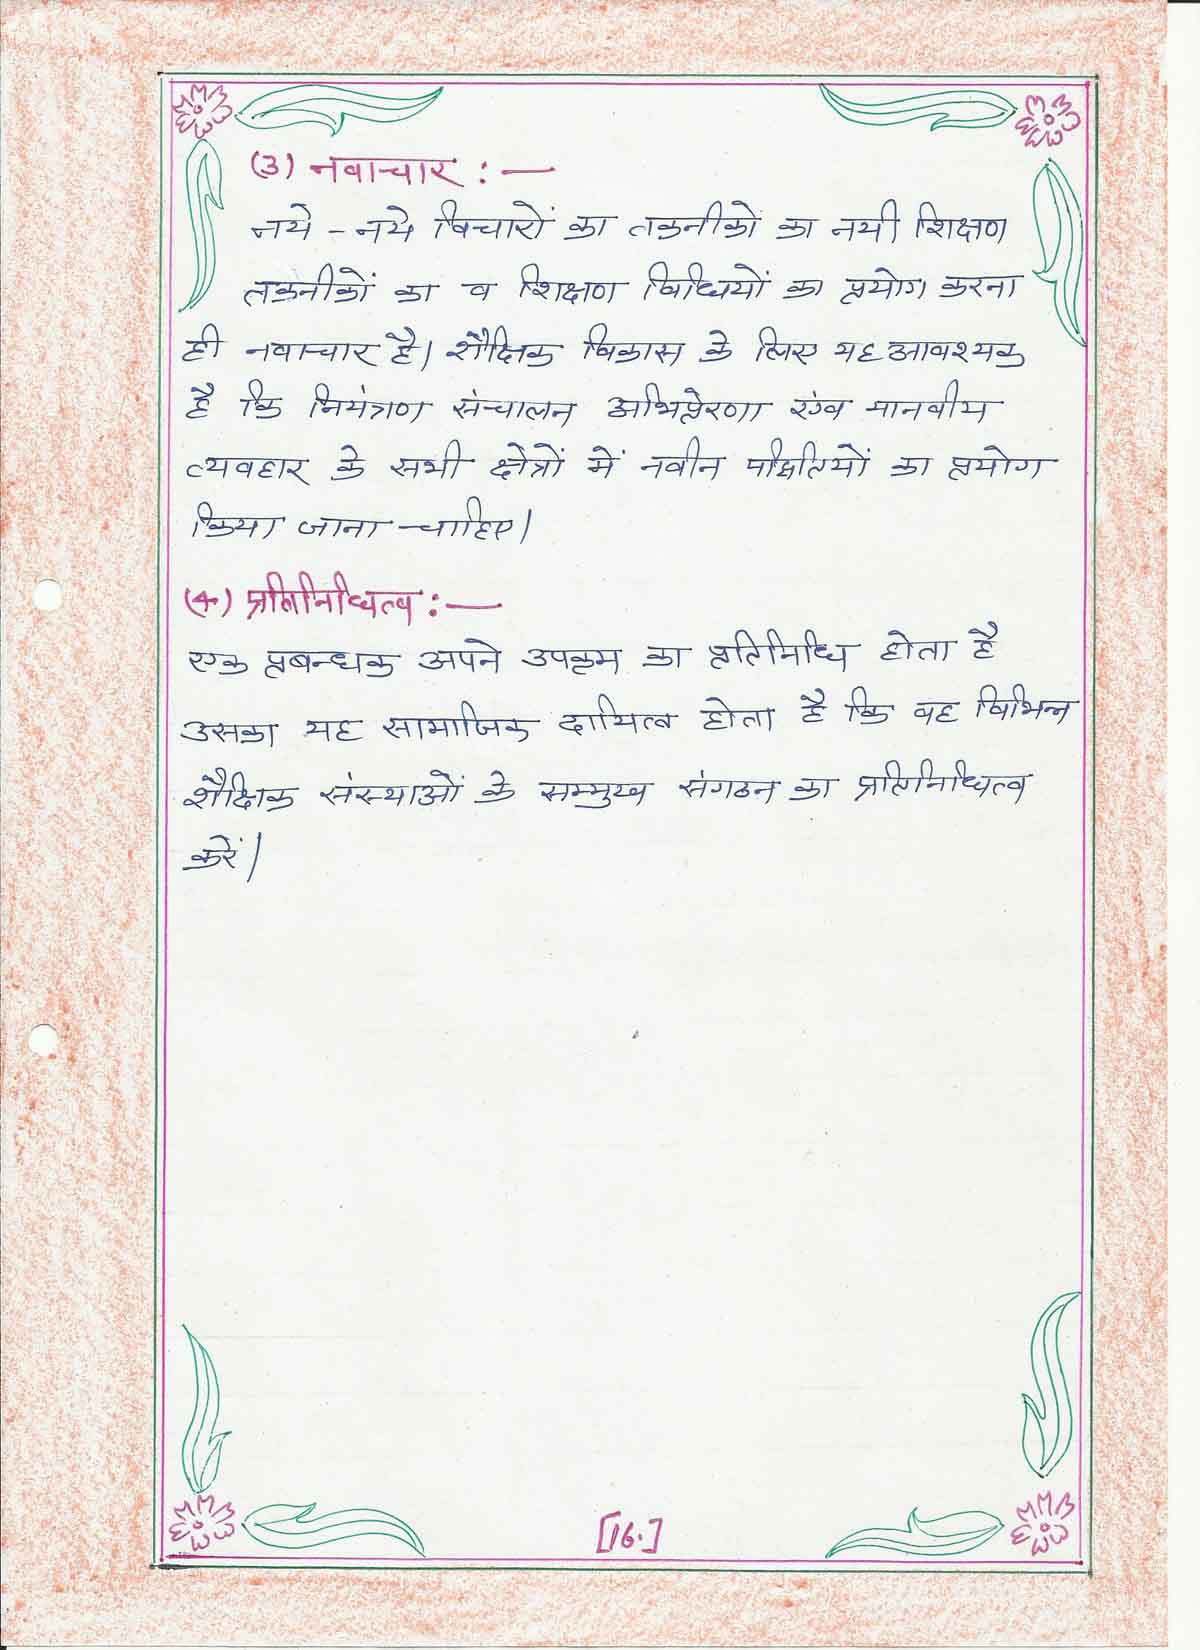 (3) नवाचार : —
नये - नये विचारों का तकनीको का नयी शिक्षण
तकनीकों का व शिक्षण विधियों का प्रयोग करना
ही नवाचार है। शैक्षिक विकास के लिए यह आवश्यक
है कि नियंत्रण संचालन अभिप्रेरणा एंव मानवीय
व्यवहार के सभी क्षेत्रों में नवीन पद्धितियों का प्रयोग
किया जाना चाहिए।
(4) प्रतिनिधित्व : —
एक प्रबन्धक अपने उपक्रम का प्रतिनिधि होता है
उसका यह सामाजिक दायित्व होता है कि वह विभिन्न
शैक्षिक संस्थाओं के सम्मुख संगठन का प्रतिनिधित्व
करें।
[16.]